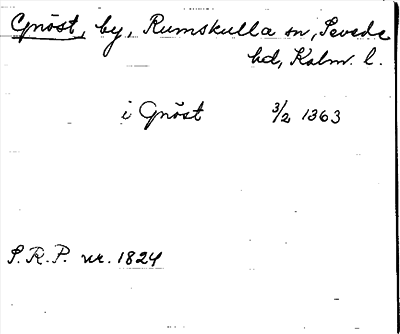 Gnöst, by, Rumskulla sn, Sevede
hd, Kalm. l.
i Gnöst 3/2 1363
S.R.P. nr. 1824